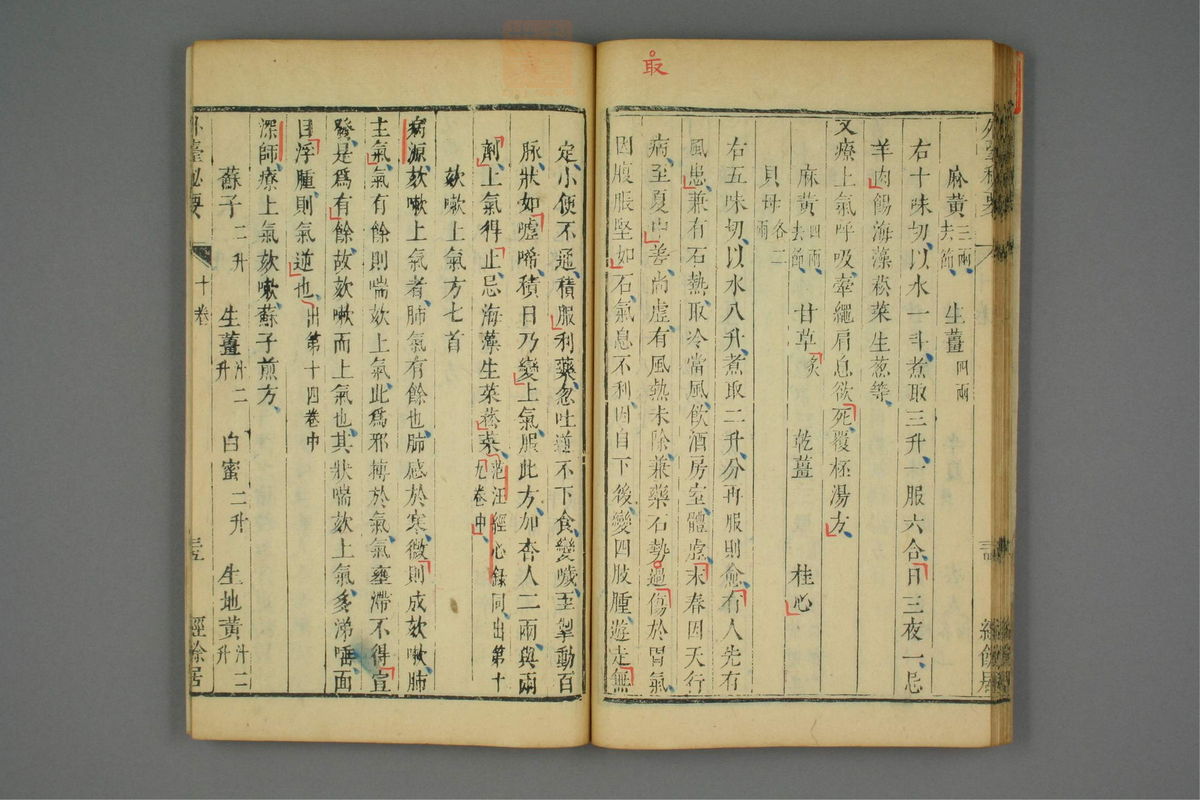 最
麻黄三兩去節 生薑四兩
右十味切以水一斗煮取三升一服六合日三夜一忌
羊肉餳海藻菘菜生葱等
又療上氣呼吸牽繩肩息欲死覆杯湯方
麻黄四兩去節 甘草炙 乾薑 桂心
貝母各二兩
右五味切以水八升煮取二升分再服則愈有人先有
風患兼有石熱取冷當風飲酒房室體虛末春因天行
病至夏中善尚虛有風熱未除兼藥石勢過傷於胃氣
因腹脹堅如石氣息不利因自下後變四肢腫遊走無
定小便不通積服利藥忽吐逆不下食變嘰至掣動百
脉狀如嘘啼積日乃變上氣服此方加杏人二兩與兩
劑上氣得止忌海藻生菜菘菜范汪經心録同出第十九卷中
欬嗽上氣方七首
病源欬嗽上氣者肺氣有餘也肺感於寒微則成欬嗽肺
主氣氣有餘則喘欬上氣此爲邪搏於氣氣壅滯不得宣
發是爲有餘故欬嗽而上氣也其狀喘欬上氣多涕唾面
目浮腫則氣逆也出第十四卷中
深師療上氣欬嗽蘇子煎方
蘇子二升 生薑汁二升 白蜜二升 生地黄汁二升
外臺秘要 十卷 三五 經餘居